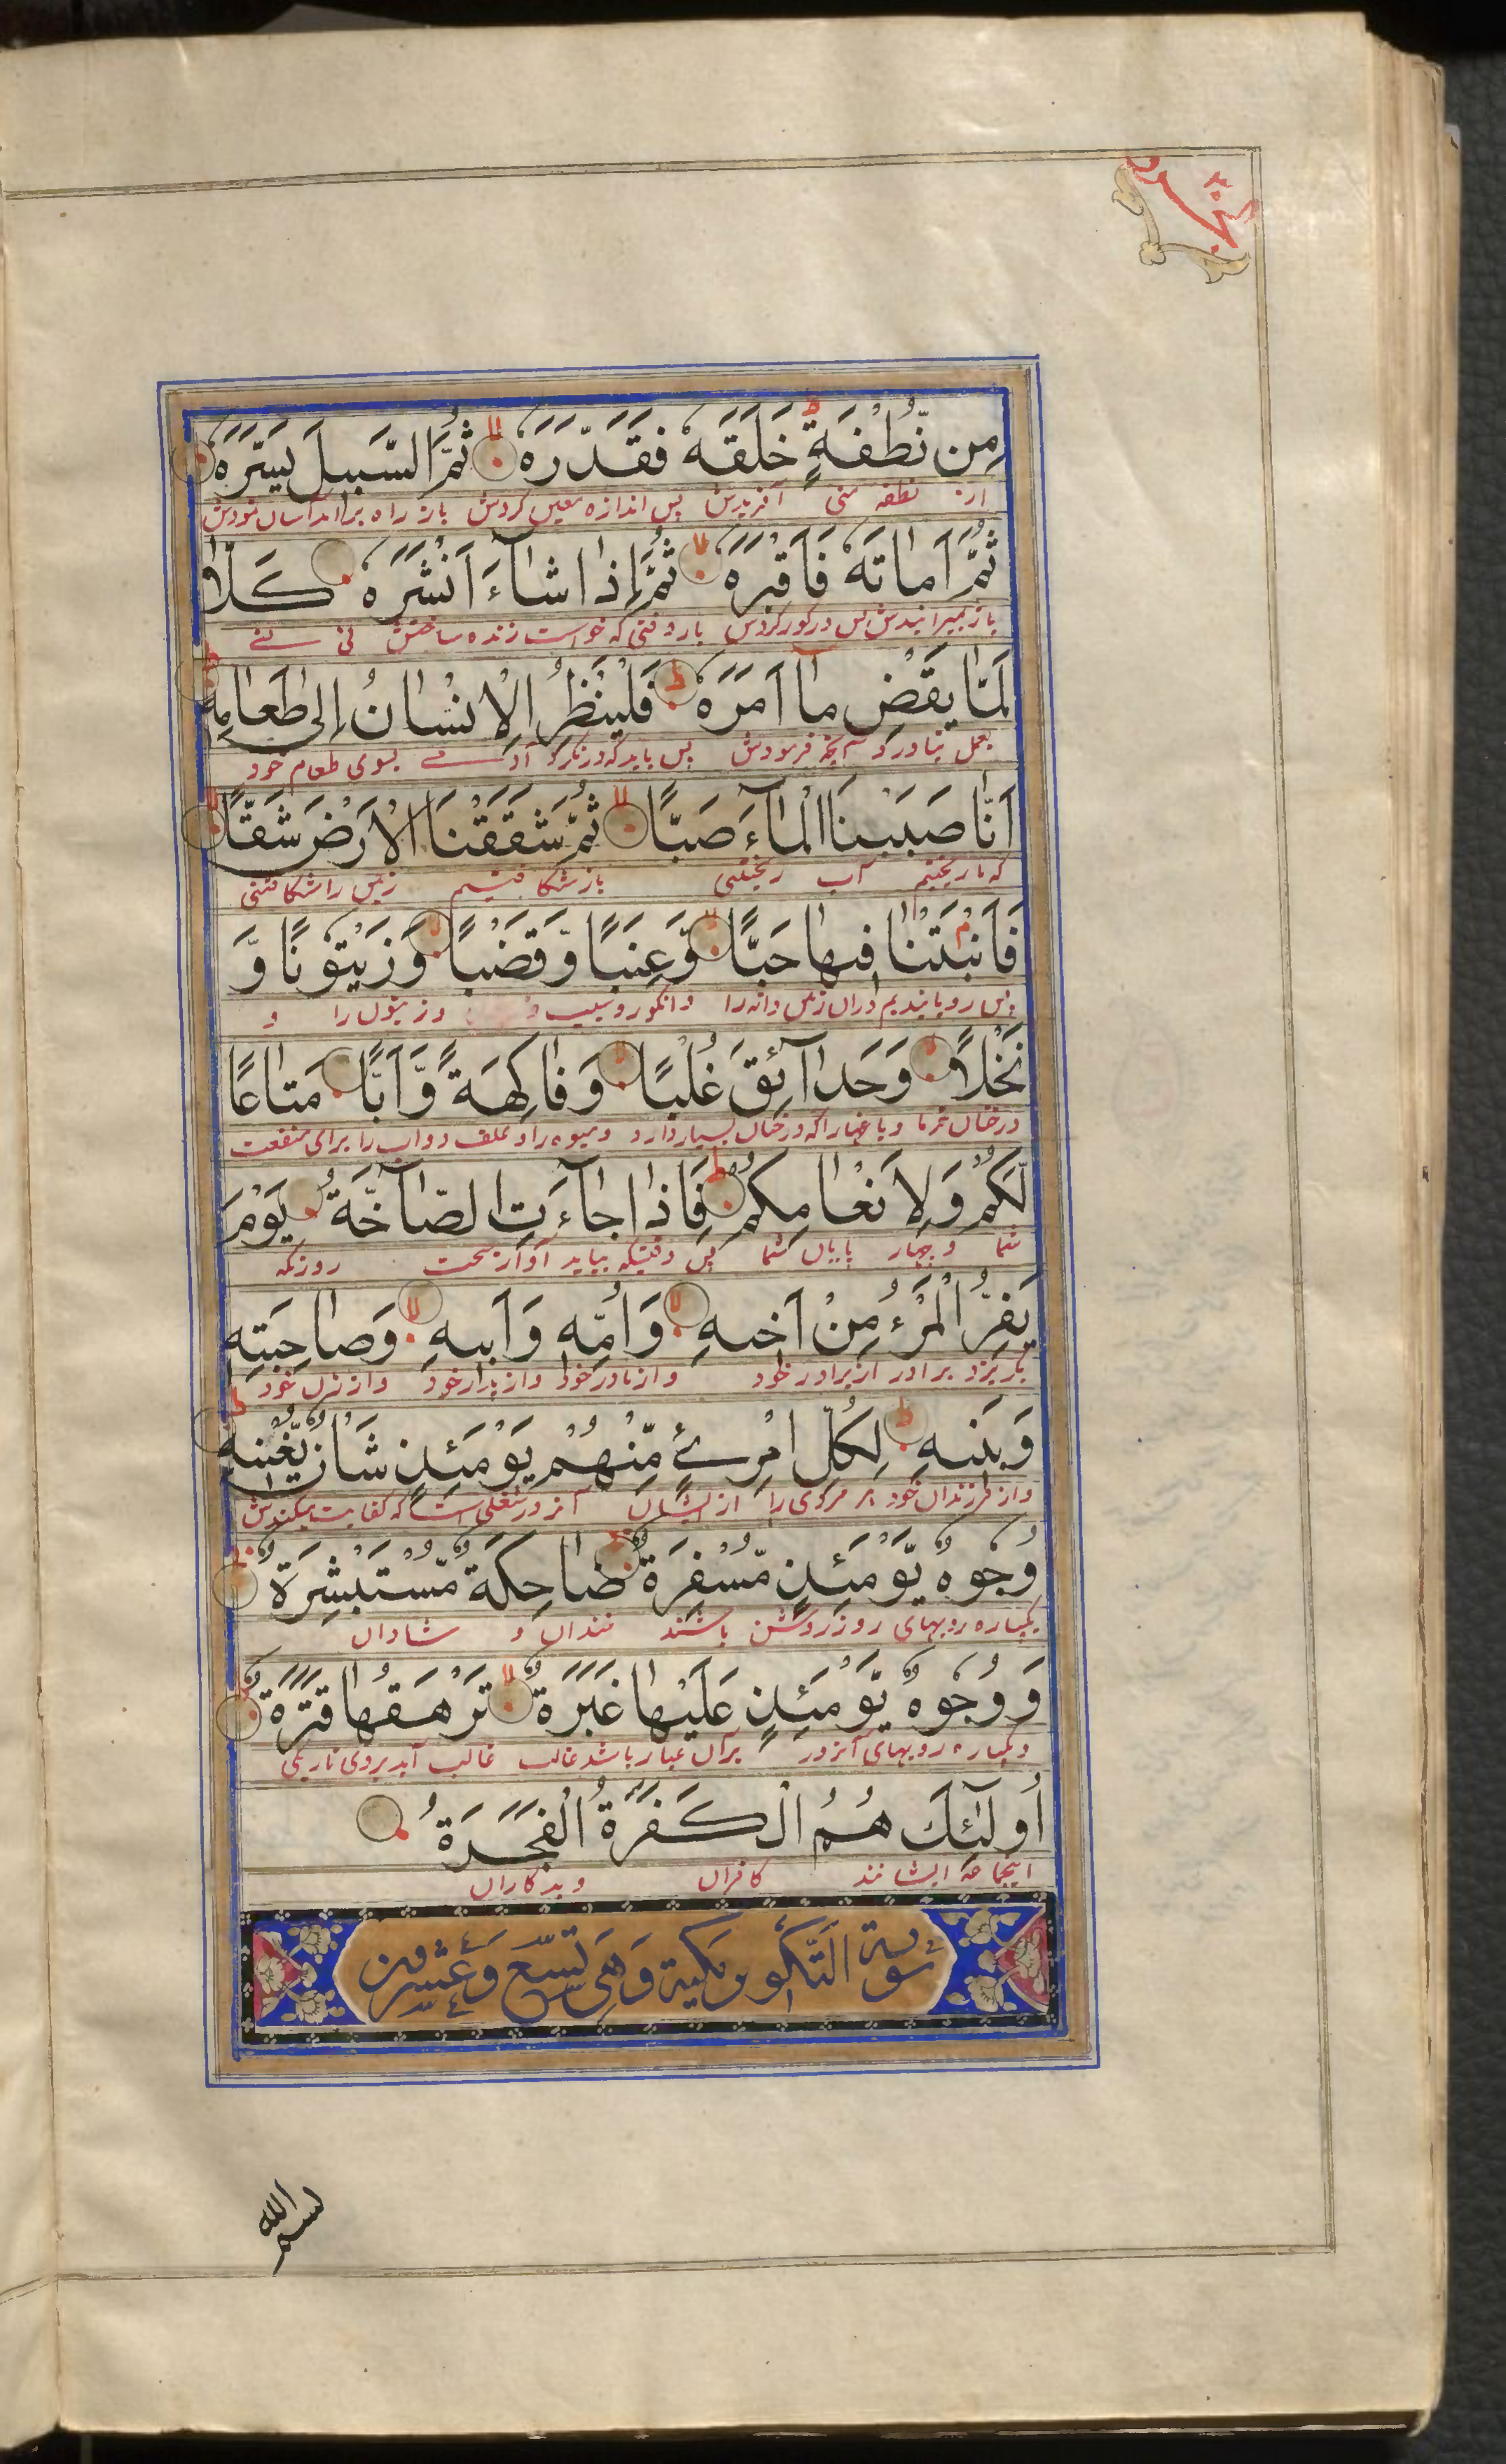 مِن نُّطْفَةٍ خَلَقَهٗ فَقَدَّرَهٗ ثُمَّ السَّبيلَ يَسَّرَهٗ
از نطفه منی آفریدش پس اندازه معین کردش باز راه برآمد آسان نمودش
ثُمَّ اَماتَهٗ فَاَقْبَرَهٗ ثُمَّ اِذا شآءَ اَنْشَرَهٗ كَلَّا
باز بمیرانیدش پس در کور کردش باز وقتی که خواست زنده ساختش نی نے
لَمّا يَقْضِ ما اَمَرَهٗ فَلْيَنْظُرِ الْاِنْسانُ اِلى طَعامِهٖ
بعمل نیاورد آنچه فرمودش پس باید که درنکرد آدمے بسوی طعام خود
اَنّا صَبَبْنَا الْمآءَ صَبًّا ثُمَّ شَقَقْنَا الْاَرْضَ شَقًّا
که ما ریختیم آب ریختنی باز شکافتیم زمین را شکافتنی
فَاَنْبَتْنا فيها حَبًّا وَّعِنَبًا وَّقَضْبًا وَّزَيْتُونًا وَّ
پس رویانیدیم دران زمین دانه را و انکور و سیب و و زیتون را و
نَخْلًا وَحَدآئِقَ غُلْبًا وَفاكِهَةً وَّاَبًّا مَتاعًا
درختان خرما و باغها را که درختان بسیار دارد و میوه را و علف دواب را برای منفعت
لَّكُمْ وَلِاَنْعامِكُمْ فَاِذا جآءَتِ الصّآخَّةُ يَوْمَ
شما و چهار پایان شما پس وقتیکه بیاید آواز سخت روزیکه
يَفِرُّ الْمَرْءُ مِنْ اَخيهِ وَاُمِّهٖ وَاَبيهِ وَصاحِبَتِهٖ
بگریزد برادر از برادر خود و از مادر خود و از پدر خود و از زن خود
وَبَنيهِ لِكُلِّ امْرِئٍ مِّنْهُمْ يَوْمَئِذٍ شَاْنٌ يُّغْنيهِ
و از فرزندان خود هر مردی را از ایشان آنروز شغلی است که کفایت میکندش
وُجُوهٌ يَّوْمَئِذٍ مُّسْفِرَةٌ ضاحِكَةٌ مُّسْتَبْشِرَةٌ
یکپاره رویهای روز روشن باشند خندان و شادان
وَوُجُوهٌ يَّوْمَئِذٍ عَلَيْها غَبَرَةٌ تَرْهَقُها قَتَرَةٌ
و یکپاره رویهای آنروز برآن غبار باشد غالب غالب آید بروی تاریکی
اُولٰٓئِكَ هُمُ الْكَفَرَةُ الْفَجَرَةُ
اینجماعه ایشانند کافران و بدکاران
سُورَة التَّكْوير مَكِّية وَهِيَ تِسْعٌ وَعِشْرُون
بسم الله